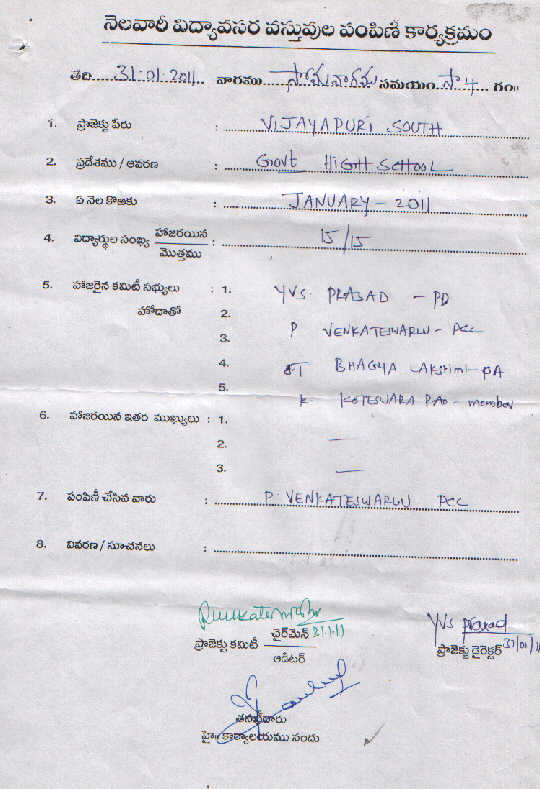 నెలవారీ విద్యావసర వస్తువుల పంపిణీ కార్యక్రమం
తేది.....31-01-2011.... వారము.....సోమవారము సమయం.సా 4.... గం॥
1. ప్రాజెక్టు పేరు : VIJAYAPURI SOUTH
2. ప్రదేశము / ఆవరణ : Govt HIGH SCHOOL
3. ఏ నెల కొఱకు : JANUARY - 2011
4. విద్యార్థుల సంఖ్య హాజరయిన : 15/15
మొత్తము
5. హాజరైన కమిటీ సభ్యులు : 1. YVS. PRASAD - PD
హోదాతో 2.
3. P VENKATESWARLU - PCC
4. BHAGYA LAKSHMI - PA
5. K. KOTESWARA RAO - member
6. హాజరయిన ఇతర ముఖ్యులు : 1.
2. —
3. —
7. పంపిణీ చేసిన వారు : P. VENKATESWARLU PCC
8. వివరణ / సూచనలు :
ప్రాజెక్టు కమిటీ చైర్‌మెన్ 31.1.11
ఆడిటర్
YVS Prasad
ప్రాజెక్టు డైరెక్టర్ 31/01/11
తనిఖీదారు
హై కార్యాలయము నందు